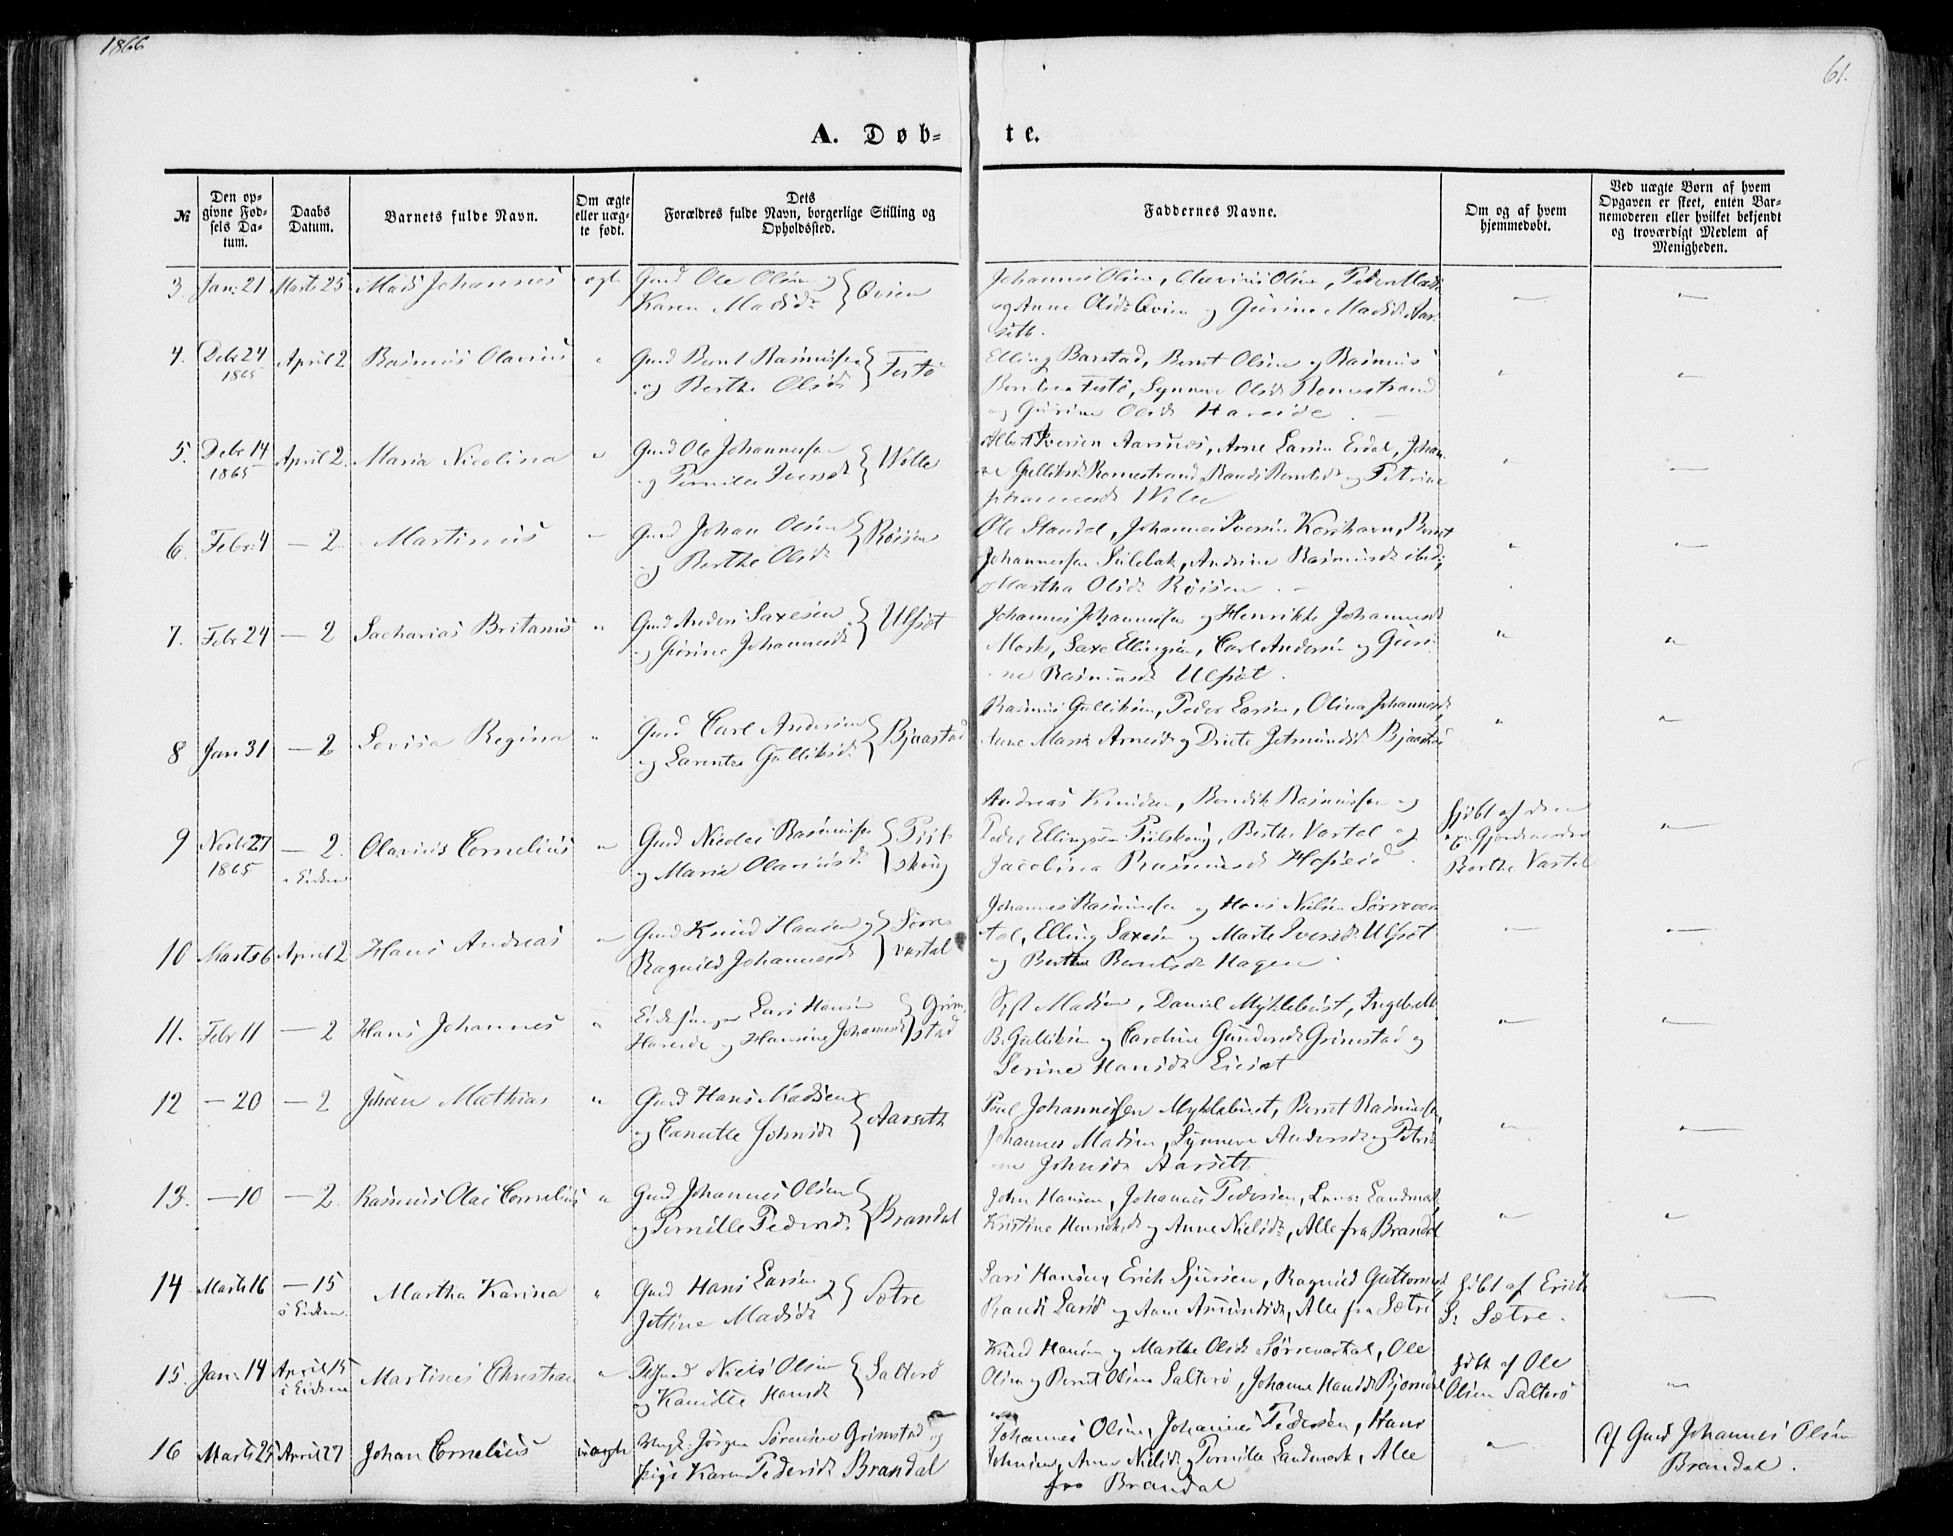 1866
61.
A. Døb-
te.
№
Den op-
givne Fød-
sels Da-
tum.
Daabs
Datum.
Barnets fulde Navn.
Om ægte
eller uæg-
te født.
Dets
Forældres fulde Navn, borgerlige Stilling og
Opholdssted.
Faddernes Navne.
Om og af hvem
hjemmedøbt.
Ved uægte Børn af hvem
Opgaven er skeet, enten Bar-
nemoderen eller hvilket bekjendt
og troværdigt Medlem af
Menigheden.
3. Jan: 21 Marts 25 Mads Johannes ægte Gmd Ole Olsen og
Karen Madsd:
Johannes Olsen, Olavius Olsen, Peder Mads
og Anne Olsd: og Gurine Madsd: Aar-
seth.
4. Debr 24
1865
April 2 Rasmus Olavius " Gmd Bernt Rasmussen
og Berthe Olsd: Festø
Elling Barstad, Bernt Olsen og Rasmus
Berntsen Festø, Synneve Olsd: Romestrand
og Gurine Olsd: Hareide
5. Debr 14
1865
April 2. Maria Nicolina " Gmd Ole Johannessen
og Pernille Iversd: Wolle
Albert Iversen Aarsnes, Arne Larsen Erdal, Johan-
ne Gulliksd: Romestrand, Randi Berntsd: og Petrine
Johannesd:
6. Febr: 4 — 2 Martinus Gmd Johan Olsen
og Berthe Olsd: Røisen
Ole Standal, Johannes Iversen Korshavn, Bernt
Johannessen Sulebak, Andrine Rasmusd: ibid:,
og Martha Olsd: Røisen.
7. Febr 24 — 2 Sacharias Britanus " Gmd Anders Saxesen
og Gurine Johannesd: Ulfsæt
Johannes Johannessen og Henrikke Johannesd:
Mork, Saxe Ellingsen, Carl Andersen og Guri-
ne Rasmusd: Ulfsæt.
8 Jan 31 — 2 Lovisa Regina " Gmd Carl Andersen
og Larentse Gulliksd: Bjaastad
Rasmus Gulliksen, Peder Larsen, Olina Johannesd:
Anne Maria Arnesd: og Jetmundsd: Bjaastad
9 Novb: 27
1865
— 2.
i Kirken
Olavius Cornelius " Gmd Nicolai Rasmussen
og Marie Olavusd:
Andreas Knudsen, Bendik Rasmussen og
Peder Ellingsen Berthe Vartal og
Jacobina Rasmusd:
hjdbt af den
ex: Gjordemoder
Berthe Vartal
10 Marts 6 April 2 Hans Andreas " Gmd Knud Hansen og
Ragnild Johannesd: Sørre-
vartal
Johannes Rasmussen og Hans Nielsen Sørrevar-
tal, Elling Saxesen og Marte Iversd: Ulfsæt
og Berthe Berntsd: Hagen.
11. Febr 11 — 2 Hans Johannes " Lars Hansen
Hareide og Hansine Johannesd: Grim-
stad
Sjft Madsen, Daniel Myklebust, Ingebrikt
B. Gulliksen og Caroline Gundersd: Grimstad og
Serine Hansd:
12 — 20 — 2 Johan Mathias " Gmd Hans Madsen
og Canutte Johnsd: Aarseth
Poul Johannessen Myklebust, Bernt Rasmussen,
Johannes Madsen, Synneve Andersd: og Petri-
ne Johnsd: Aarseth
13. — 10 — 2. Rasmus Olai Cornelius " Gmd Johannes Olsen
og Pernille Pedersd: Brandal
John Hansen, Johannes Pedersen, Landmark,
Kristine Henriksd: og Anne Nielsd:, Alle fra Brandal
14 Marts 16 — 15
i Kirken
Martha Karina " Gmd Hans Larsen og
Jettine Madsd: Sætre
Lars Hansen, Erich Sjursen, Ragnild Guttormsd:
Brandi Larsd: og Anne Amundsd:, Alle fra Sætre
hjdbt af Erich
S: Sætre.
15. Jan: 14 April 15
i Kirken
Martinus Christian " Niels Olsen
og Kanutte Hansd: Salterø
Knud Hansen og Marthe Olsd: Sørrevartal, Ole
Olsen og Bernt Olsen Salterø, Johanne Hansd:
hjdbt af Ole
Olsen Salterø
16 Marts 25 April 27 Johan Cornelius uægte Ungk: Jørgen Sørensen Grimstad og
Pige Karen Pedersd: Brandal
Johannes Olsen, Johannes Pedersen, Hans
Johnsen, Anne Nielsd: og Pernille Landmark, Alle
fra Brandal
Af Gmd Johannes Olsen
Brandal.